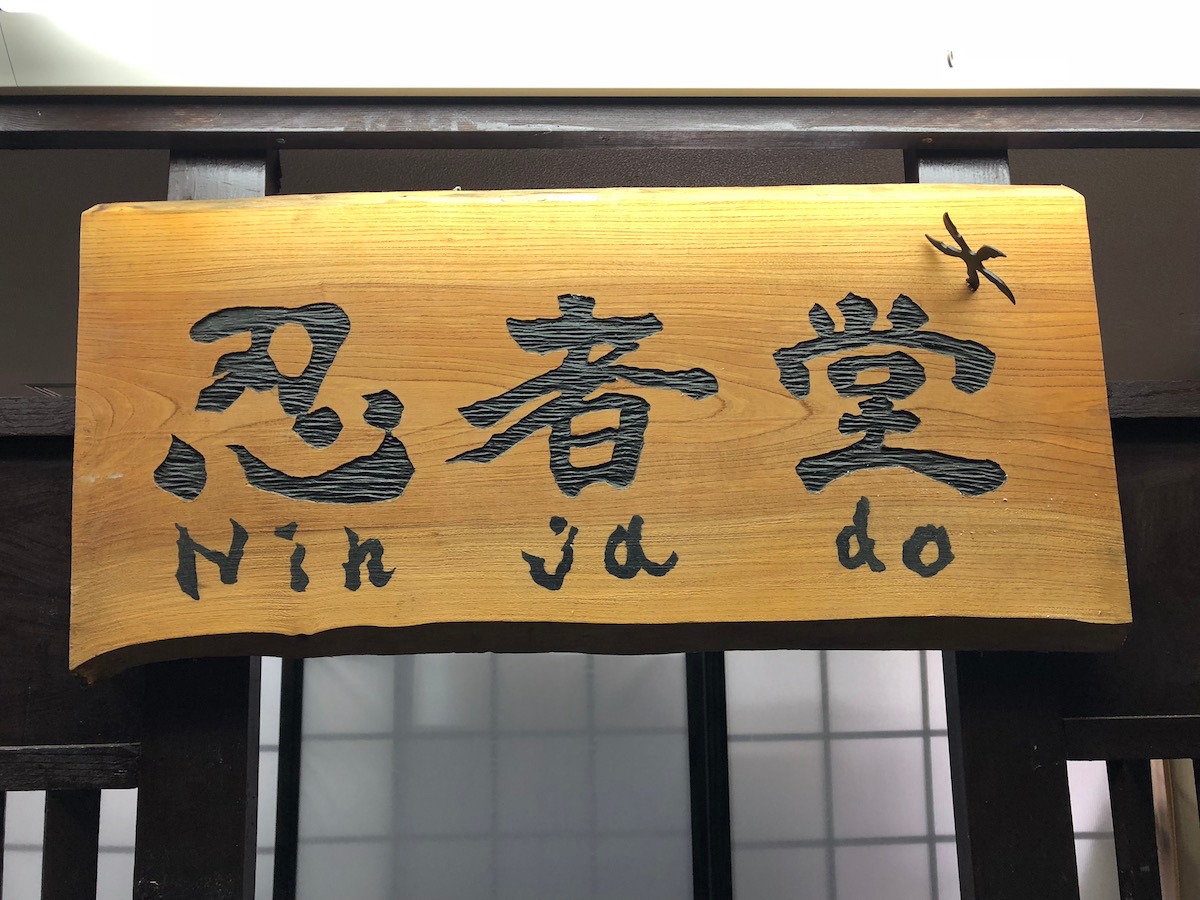 忍者堂
Nin ja do